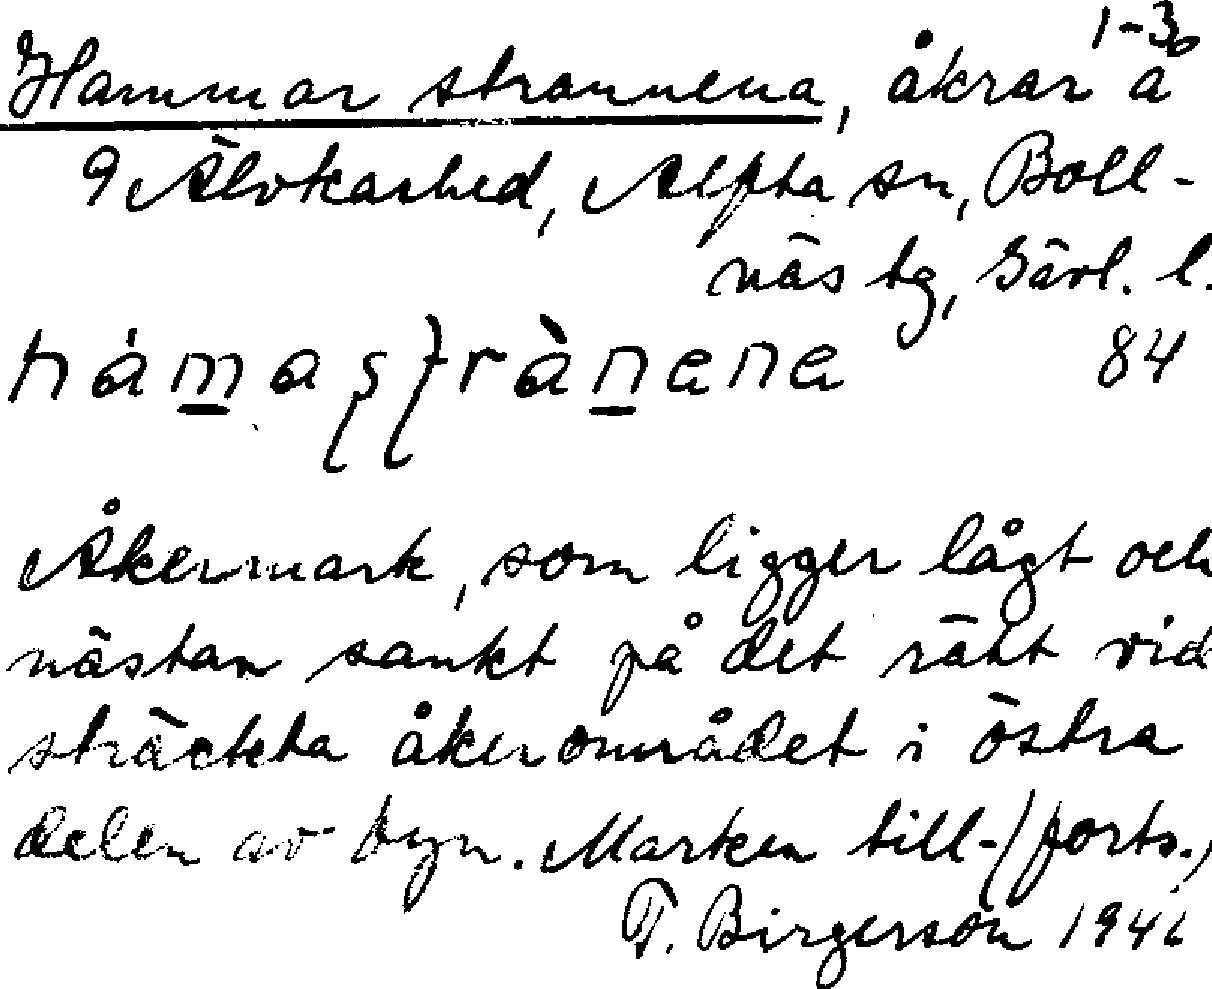 1-3
Hammar strannena, åkrar å
9 Älvkarhed, Alfta sn, Boll-
näs tg, Gävl. l.
84
Åkermark, som ligger lågt och
nästan sankt på det rätt vid
sträckta åkerområdet i östra
delen av byn. Marken till-(forts.)
T. Birgerson 194